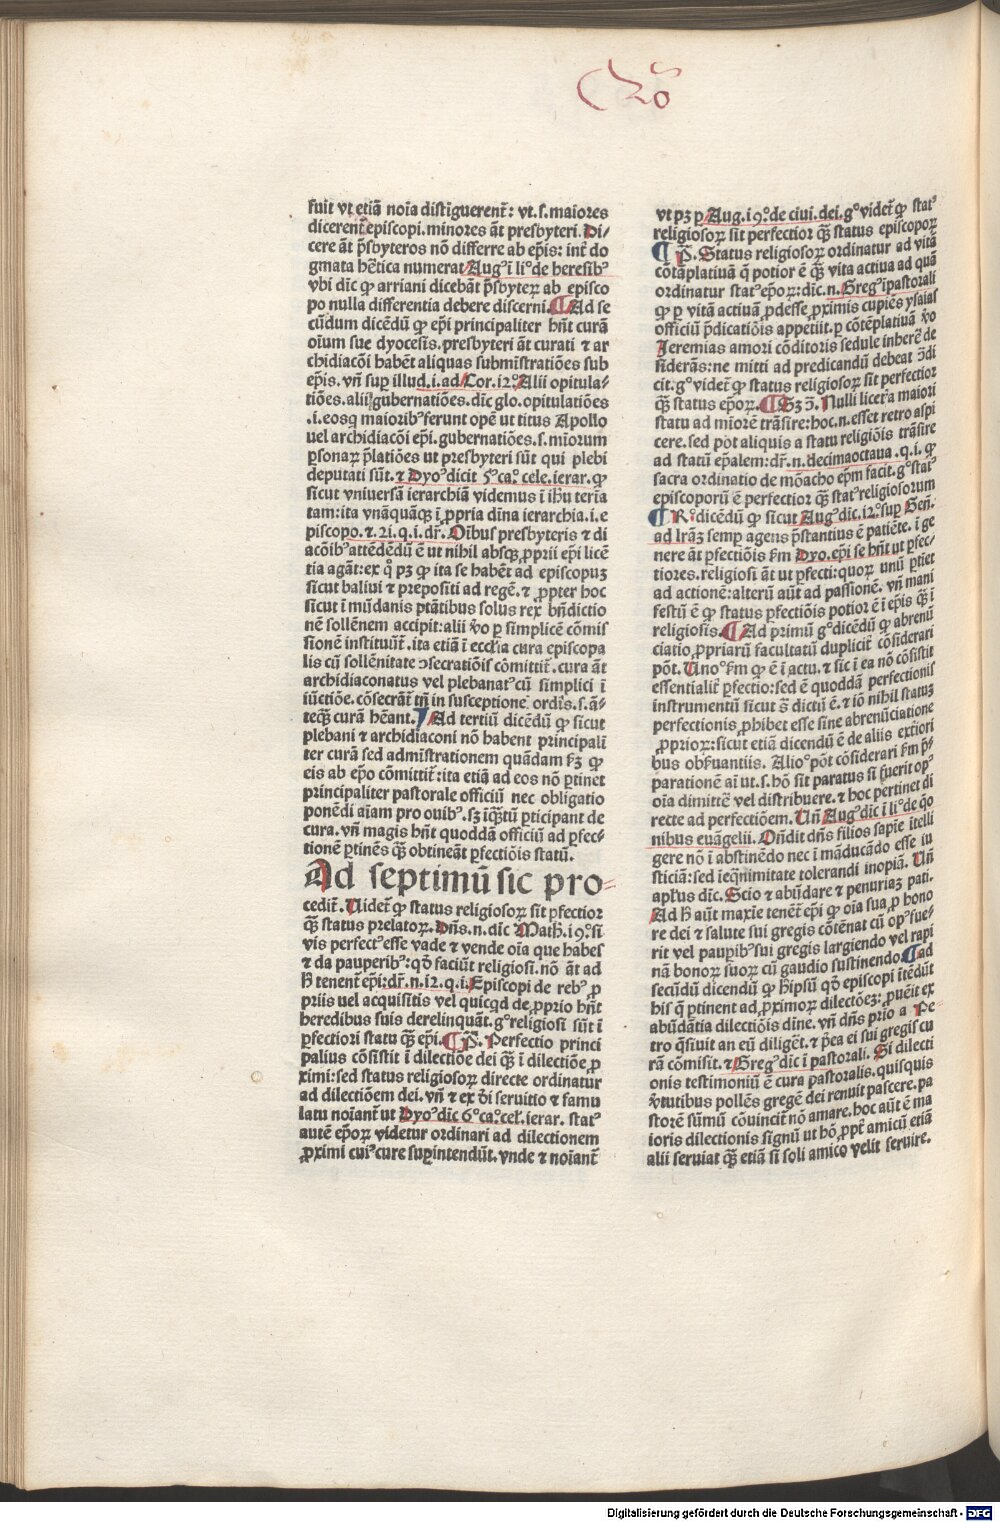 Qō
fuit vt etiā noīa distīguerent᷒: vt.s. maiores
dicerent᷒ episcopi. minores āt presbyteri. Di⸗
cere āt p̄sbyteros nō differre ab ep̄is: int᷒ do
gmata hētica numerat Aug᷒ ī li°de heresib᷒
vbi dīc ꝙ arriani dicebāt p̄sbyteꝝ ab episco
po nulla differentia debere discerni. ¶ Ad se
cūdum dicēdū ꝙ ep̄i principaliter hn̄t curā
oīum sue dyocesis. presbyteri āt curati ⁊ ar
chidiacōi habēt aliquas submīstratiōes sub
ep̄is. vn̄ suꝑ illud .i. ad Cor. 12°. Alii opitula⸗
tiōes. alii gubernatiōes. dīc glo. opitulatiōes
.i. eosꝗ maiorib᷒ ferunt opē ut titus Apollo
uel archidiacōi ep̄i. gubernatiōes. s. mīorum
ꝑsonaꝝ p̄latiōes ut presbyteri sūt qui plebi
deputati sūt. ⁊ Dyo᷒ dicit 5°ca°. cele. ierar. ꝙ
sicut vniuersā ierarchiā videmus ī ih̄u termīa
tam: ita vnāquāꝗ ī ꝓpria dīna ierarchia. i. e
piscopo. ⁊ .21. q. i. dr̄. Oībus presbyteris ⁊ di
acōib᷒ attēdēdū ē ut nihil absꝗ ꝓprii ep̄i licē
tia agāt: ex q° pꝫ ꝙ ita se habēt ad episcopuꝫ
sicut baliui ⁊ prepositi ad regē. ⁊ ꝓpter hoc
sicut ī mūdanis ptātibus solus rex bn̄dictio
nē sollēnem accipit: alii ꝟo ꝑ simplicē cōmis
sionē instituūt᷒. ita etiā ī ecclīa cura episcopa
lis cū sollēnitate ↄsecratiōis cōmittit᷒. cura āt
archidiaconatus vel plebanat᷒ cū simplici ī
iūctiōe. cōsecrāt᷒ tn̄ in susceptione ordīs. s. ā⸗
teꝗ curā hēant. ¶ Ad tertiū dicēdū ꝙ sicut
plebani ⁊ archidiaconi nō habent principali᷒
ter curā sed admīstrationem quādam ẜꝫ ꝙ
eis ab ep̄o cōmittit᷒: ita etiā ad eos nō ꝑtinet
principaliter pastorale officiū nec obligatio
ponēdi aīam pro ouib᷒. sꝫ īꝗ̄tū ꝑticipant de
cura. vn̄ magis hn̄t quoddā officiū ad ꝑfec⸗
tionē ꝑtinēs ꝗ̄ obtineāt ꝑfectiōis statū.
Ad septimū sic pro⸗
cedit᷒. Uidet᷒ ꝙ status religiosoꝝ sit ꝑfectior
ꝗ̄ status prelatoꝝ. Dn̄s. n. dīc Math. 19°. si
vis perfect᷒ esse vade ⁊ vende oīa que habes
⁊ da pauperib᷒: qđ faciūt religiosi. nō āt ad
h̄ tenent᷒ ep̄i: dr̄. n. 12. q. i. Episcopi de reb᷒ ꝓ
priis uel acquisitis vel quicꝗd de ꝓprio hn̄t
heredibus suis derelinquāt. g° religiosi sūt ī
ꝑfectiori statu ꝗ̄ ep̄i. ¶ P̄. Perfectio princi
palius cōsistit ī dilectiōe dei ꝗ̄ ī dilectiōe ꝓ
ximi: sed status religiosoꝝ directe ordinatur
ad dilectiōem dei. vn̄ ⁊ ex di seruitio ⁊ famu
latu noīant᷒ ut Dyo᷒ dīc 6°ca°. cel̄. ierar. stat᷒
autē ep̄oꝝ videtur ordinari ad dilectionem
ꝓximi cui᷒ cure suꝑintendūt. vnde ⁊ noīant᷒
vt pꝫ ꝑ Aug. 19°. de ciui. dei. g° videt᷒ ꝙ stat᷒
religiosoꝝ sit perfectior ꝗ̄ status episcopoꝝ
¶ P̄. Status religiosoꝝ ordinatur ad vitā
cōtāplatiuā q̄ potior ē ꝗ̄ vita actiua ad quā
ordinatur stat᷒ ep̄oꝝ: dīc. n. Greg᷒ ī pastorali
ꝙ ꝑ vitā actiuā ꝓdesse ꝓximis cupiēs ysaias
officiū p̄dicatiōis appetiit. ꝑ cōtēplatiuā ꝟo
Jeremias amori cōditoris sedule inherē᷒ de
siderās: ne mitti ad predicandū debeat ↄ̄di
cit. g° videt᷒ ꝙ status religiosoꝝ sit perfectior
ꝗ̄ status epoꝝ. ¶ Sꝫ ↄ̄. Nulli licet᷒ a maiori
statu ad miorē trāsire: hoc. n. esset retro aspi
cere. sed pōt aliquis a statu religiōis trāsire
ad statū ep̄alem: dr̄. n. decimaoctaua. q. i. ꝙ
sacra ordinatio de mōacho ep̄m facit. g° stat᷒
episcoporū ē perfectior ꝗ̄ stat᷒ religiosorum
¶ R°. dicēdū ꝙ sicut Aug᷒ dīc. 12°. suꝑ Gen̄.
ad lr̄aꝫ semꝑ agens p̄stantius ē patiēte. ī ge
nere āt ꝑfectiōis ẜm Dyo. ep̄i se hn̄t ut ꝑfec⸗
tiores. religiosi āt ut ꝑfecti: quoꝝ unū ꝑtiet
ad actionē: alterū aūt ad passionē. vn̄ mani
festū ē ꝙ status ꝑfectiōis potior ē ī ep̄is ꝗ̄ ī
religiosis. ¶ Ad primū g° dicēdū ꝙ abrenū
ciatio ꝓpriarū facultatū duplicit᷒ cōsiderari
pōt. Uno° ẜm ꝙ ē ī actu. ⁊ sic ī ea nō cōsistit
essentialit᷒ ꝑfectio: sed ē quoddā perfectionis
instrumentū sicut s̄ dictū ē. ⁊ iō nihil statuꝫ
perfectionis ꝓhibet esse sine abrenūciatione
ꝓprioꝝ: sicut etiā dicendū ē de aliis extiori
bus obẜuantiis. Alio° pōt cōsiderari ẜm p̄⸗
parationē aīi ut. s. hō sit paratus si fuerit op᷒
oīa dimittē᷒ vel distribuere. ⁊ hoc pertinet di
recte ad perfectiōem. Un̄ Aug᷒ dīc ī li°de q̄o
nibus euāgelii. On̄dit dn̄s filios sapiē itelli
gere nō ī abstinēdo nec ī māducādo esse iu
sticiā: sed īeq̄nimitate tolerandi inopiā. Un̄
apl᷒us dīc. Scio ⁊ abūdare ⁊ penuriaꝫ pati.
Ad h̄ aūt maxīe tenēt᷒ ep̄i ꝙ oīa sua ꝓ bono
re dei ⁊ salute sui gregis cōtēnāt cū op᷒ fue⸗
rit vel pauꝑib᷒ sui gregis largiendo vel rapi
nā bonoꝝ suoꝝ cū gaudio sustinendo. ¶ Ad
secūdū dicendū ꝙ h̄ipsū qđ episcopi ītēdūt
his q̄ ꝑtinent ad ꝓximoꝝ dilectōeꝫ: ꝓueīt ex
abūdātia dilectiōis dīne. vn̄ dn̄s prīo a Pe⸗
tro q̄siuit an eū diliget᷒. ⁊ p̄ea ei sui gregis cu
rā cōmisit. ⁊ Greg᷒ dīc ī pastorali. Si dilecti
onis testimoniū ē cura pastoralis. quisquis
ꝟtutibus pollēs gregē dei renuit pascere. pa
storē sūmū cōuincit᷒ nō amare. hoc aūt ē ma
ioris dilectionis signū ut hō ꝓpt᷒ amicū etiā
alii seruiat ꝗ̄ etiā si soli amico velit seruire.
Digitalisierung gefördert durch die Deutsche Forschungsgemeinschaft - DFG